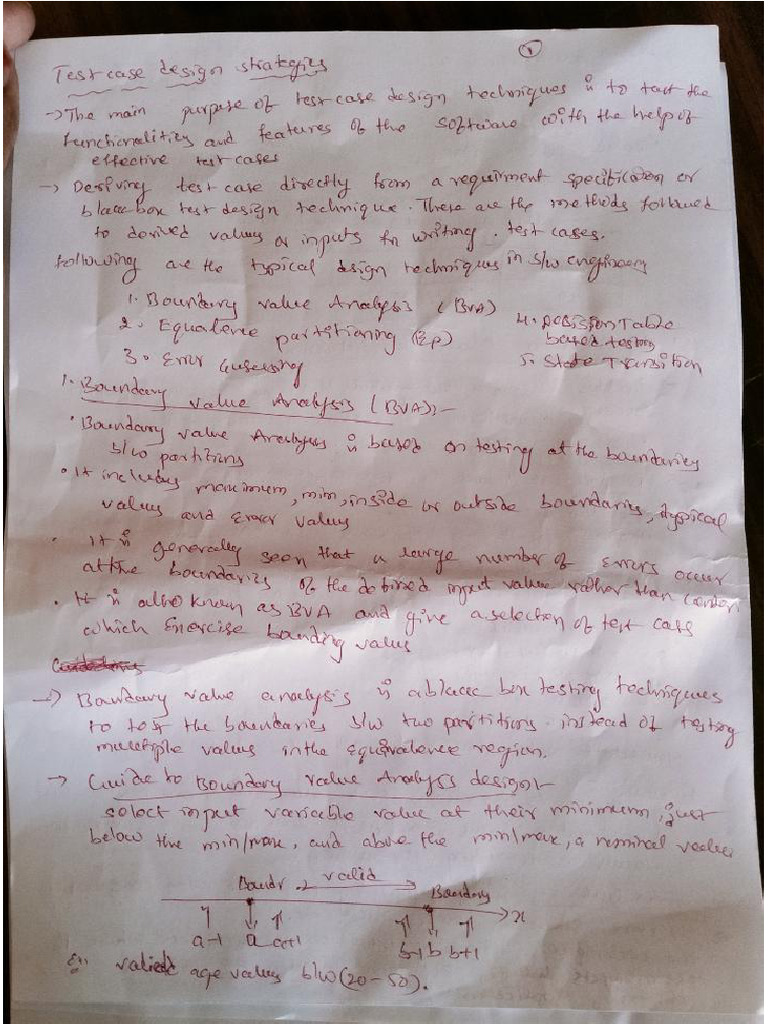 1
Test case design strategies
→ The main purpose of test case design techniques is to test the
functionalities and features of the software with the help of
effective test cases
→ Deriving test case directly from a requirment specification or
black box test design technique. These are the methods followed
to derived values or inputs for writing. test cases.
following are the typical design techniques in s/w engineery
1. Boundary value Analysis (BVA)
2. Equalence partitioning (EP)
3. Error Guessing
4. Decission Table
based testing
5. State Transition
1. Boundary value Analysis (BVA):-
• Boundary value Analysis is based on testing at the boundaries
b/w partitions
• It includes maximum, min, inside or outside boundaries, typical
values and error values
• It is generally seen that a large number of errors occur
at the boundaries of the defined input value rather than center
• It is also known as BVA and give a selection of test cass
which Exercise bounding values
→ Boundary value analysis is a black box testing techniques
to test the boundaries b/w two partitions. instead of testing
multiple values in the equivalence region.
→ Guide to Boundary value Analysis design:-
select input variable value at their minimum, just
below the min/max, and above the min/max, a nominal value
Boundr valid Boundary
x
a-1 a a+1 b-1 b b+1
Ex: valied age values b/w (20-50).